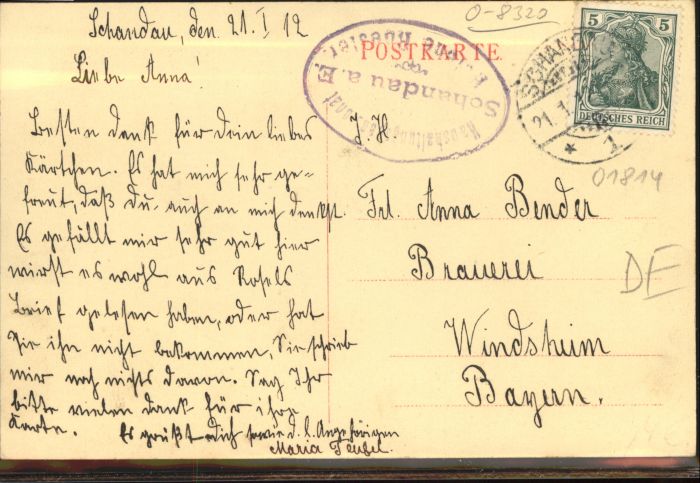 Schandau, den 21. I 12
Liebe Anna!
Besten Dank für Dein liebes
Kärtchen. Es hat mich sehr ge-
freut, daß Du auch an mich denkst.
Es gefällt mir sehr gut hier
wirst es wohl aus Rosels
Brief gelesen haben, oder hat
Sie ihn nicht bekommen, Sie schrieb
mir noch nichts davon. Sag Ihr
bitte vielen Dank für ihre
Karte.
Es grüßt Dich sowie d. l. Angehörigen
Maria
POSTKARTE
Haushaltungspensionat
Schandau a. E.
O-8320
SCHANDAU
21.1.
5 5
DEUTSCHES REICH
01814
Frl. Anna Bender
Brauerei
Windsheim
Bayern.
DE